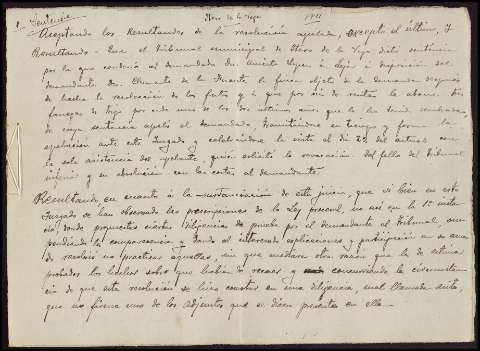 Sentencia
Itero de la Vega
1911
Aceptando los Resultandos de la resolución apelada, excepto el último, y
Resultando = Que el Tribunal municipal de Itero de la Vega dictó sentencia
por la que condenó al demandado Dn. Aniceto López á dejar á disposición del
demandante Dn. Clemente de la Puente la finca objeto de la demanda después
de hecha la recolección de los frutos y á que por vía de renta le abone dos
fanegas de trigo por cada uno de los dos últimos años que la ha tenido sembrada,
de cuya sentencia apeló el demandado, tramitándose en tiempo y forma la
apelación ante este Juzgado y celebrándose la vista el día 29 del actual con
la sola asistencia del apelante, quien solicitó la revocación del fallo del Tribunal
inferior y su absolución con las costas al demandante.
Resultando, en cuanto á la sustanciación de este juicio, que si bien en este
Juzgado se han observado las prescripciones de la Ley procesal, no así en la 1ª instan
cia, donde propuestas ciertas diligencias de prueba por el demandante el Tribunal, sus
pendiendo la comparecencia y dando al interesado explicaciones y participación en su acuer
do resolvió no practicar aquellas, sin que mediara otra razón que la de estimar
probados los hechos sobre que habían de versar y concurriendo la circunstan
cia de que esta resolución se hizo constar en una diligencia, mal llamada auto,
que no firma uno de los adjuntos que se dicen presentes en ella.